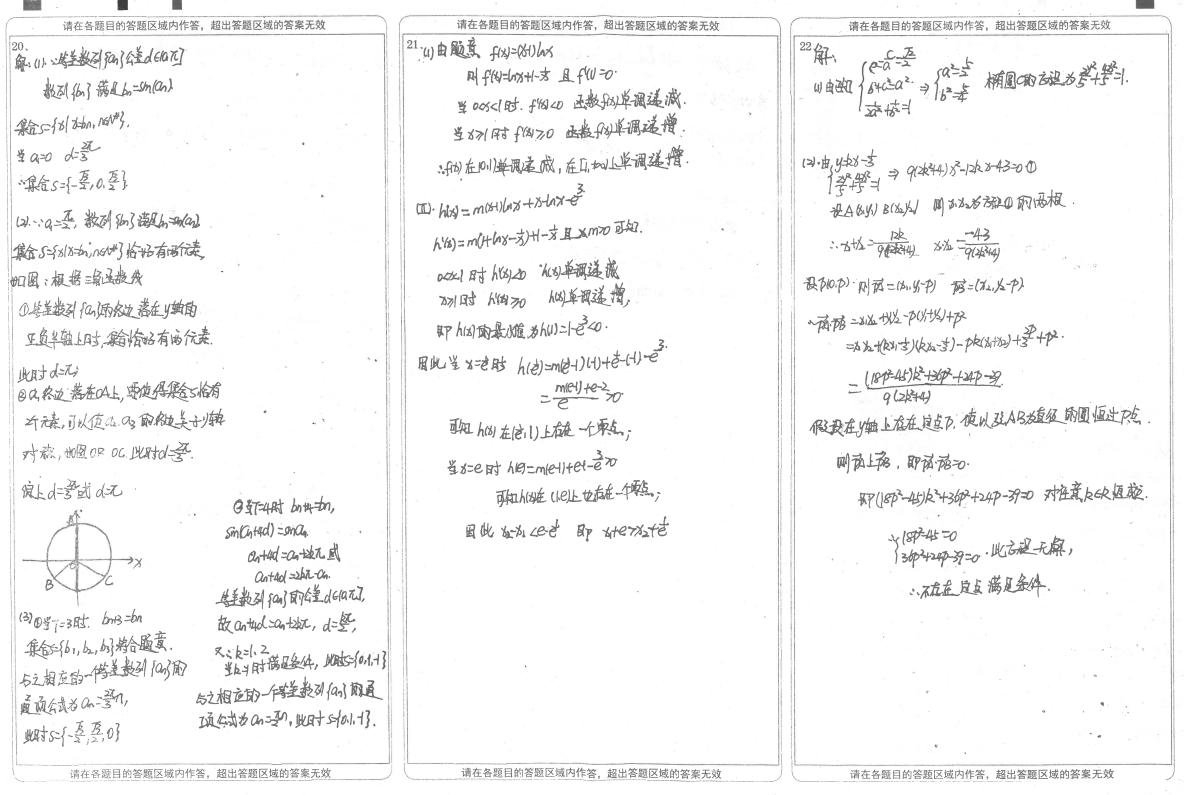 请在各题目的答题区域内作答，超出答题区域的答案无效
20、
解：(1)∵等差数列{an}公差d∈(0,π]
数列{bn}满足bn=sin(an)
集合S={x|x=bn,n∈N*}.
当a₁=0 d=2π/3
∴集合S={-√3/2,0,√3/2}
(2)∵a₁=π/2，数列{bn}满足bn=sin(an)
集合S={x|x=bn,n∈N*}恰好有两个元素
如图：根据三角函数线
①等差数列{an}的终边落在y轴的
正负半轴上时，集合恰好有两个元素.
此时d=π;
②a₁终边落在OA上，要使得集合S恰有
2个元素，可以使a₂,a₃的终边关于y轴
对称，如图OB OC.此时d=2π/3.
综上d=2π/3或d=π
A
O
X
B
C
(3)①当T=3时. bn+3=bn
集合S={b₁,b₂,b₃}符合题意.
与之相应的一个等差数列{an}的
通项公式为an=2π/3 n,
此时S={-√3/2,√3/2,0}
②当T=4时 bn+4=bn,
sin(an+4d)=sinan
an+4d=an+2kπ 或
an+4d=2kπ-an.
等差数列{an}的公差d∈(0,π],
故an+4d=an+2kπ，d=kπ/2,
又∴k=1,2
当k=1时满足条件，此时S={0,1,-1}
与之相应的一个等差数列{an}的通
项公式为an=π/2 n，此时S={0,1,-1}.
请在各题目的答题区域内作答，超出答题区域的答案无效
请在各题目的答题区域内作答，超出答题区域的答案无效
21.(1)由题意 f(x)=(x-1)lnx
则f'(x)=lnx+1-1/x 且f'(1)=0.
当0<x<1时. f'(x)<0 函数f(x)单调递减.
当x≥1时f'(x)≥0 函数f(x)单调递增.
∴f(x)在(0,1)单调递减，在[1,+∞)上单调递增.
(Ⅱ). h(x)=m(x-1)lnx+x-lnx-e³
h'(x)=m(1+lnx-1/x)+1-1/x 且m>0可知.
0<x<1时h'(x)<0 h(x)单调递减
x≥1时 h'(x)≥0 h(x)单调递增,
即h(x)的最小值为h(1)=1-e³<0.
可知h(x)在 上存在一个零点；
可知h(x)在(1,e)上也存在一个零点；
因此 x₂-x₁<e-1/e 即 x₁+e>x₂+1/e
请在各题目的答题区域内作答，超出答题区域的答案无效
请在各题目的答题区域内作答，超出答题区域的答案无效
22 解：
椭圆C的方程为2x²/5+4y²/5=1.
(2)由{y=kx-1/3
2x²/5+4y²/5=1 ⇒ 9(2k²+4)x²-12kx-43=0 ①
设A(x₁,y₁) B(x₂,y₂) 则x₁,x₂为方程①的两根.
∴x₁+x₂=12k/9(2k²+4) x₁x₂=-43/9(2k²+4)
设P(0,p).则PA=(x₁,y₁-p) PB=(x₂,y₂-p)
∴PA·PB=x₁x₂+y₁y₂-p(y₁+y₂)+p²
=x₁x₂+(kx₁-1/3)(kx₂-1/3)-pk(x₁+x₂)+2p/3+p².
=(18p²-45)k²+36p²+24p-39/9(2k²+4)
假设在y轴上存在定点P，使以弦AB为直径的圆恒过P点.
则PA⊥PB，即PA·PB=0.
即(18p²-45)k²+36p²+24p-39=0 对任意k∈R恒成立.
{18p²-45=0
36p²+24p-39=0 .此方程无解，
∴不存在定点满足条件.
请在各题目的答题区域内作答，超出答题区域的答案无效